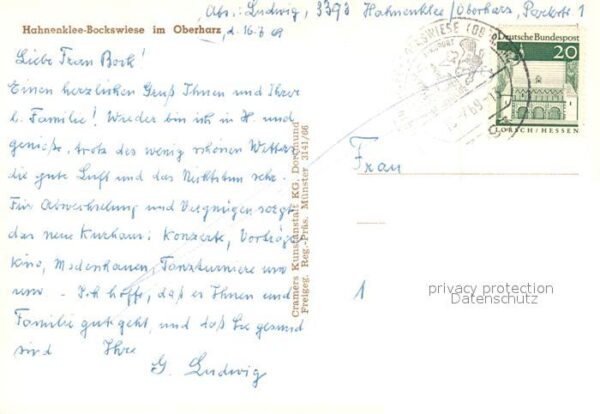 Abs.: Ludwig, 3393 Hahnenklee/Oberharz, Parkstr. 1
Hahnenklee-Bockswiese im Oberharz, d. 16.7.69
Liebe Frau Bock!
Einen herzlichen Gruß Ihnen und Ihrer
l. Familie! Wieder bin ich in H. und
genieße, trotz des wenig schönen Wetters
die gute Luft und das Nichtstun sehr.
Für Abwechselung und Vergnügen sorgt
das neue Kurhaus: Konzerte, Vorträge
Kino, Modenschauen, Tanzturniere usw
usw. - Ich hoffe, daß es Ihnen und
Familie gut geht, und daß Sie gesund
sind Ihre
G. Ludwig
Cramers Kunstanstalt KG. Dortmund
Freigeg. Reg.-Präs. Münster 3141/66
Deutsche Bundespost
20
LORSCH/HESSEN
Frau
1
privacy protection
Datenschutz